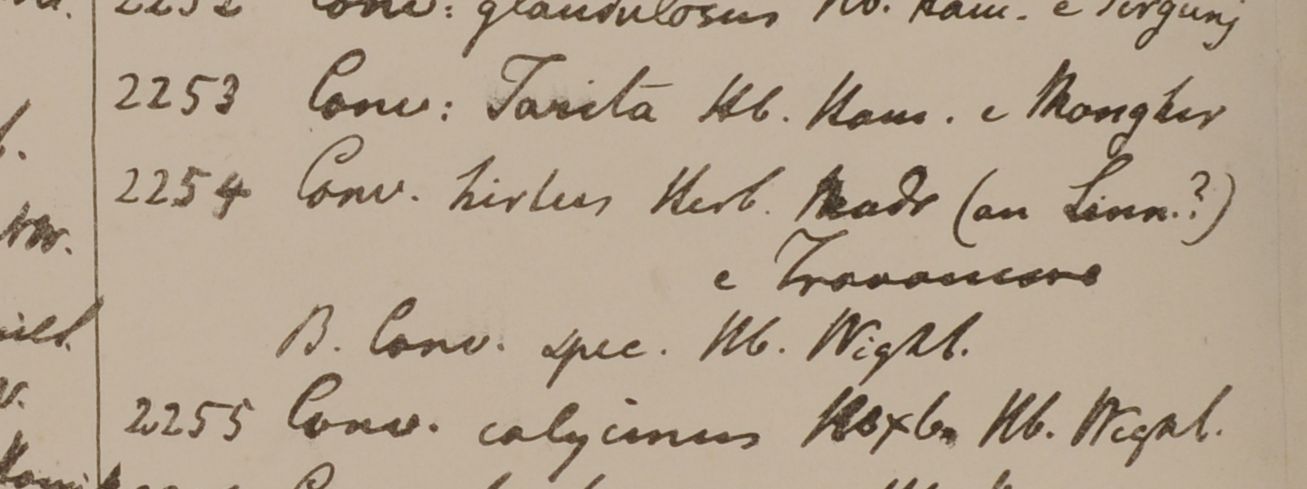 2252 Conv: glandulosus Hb. Ham. e Pirgunj
2253 Conv: Tarita Hb. Ham. e Mongher
2254 Conv. hirtus Herb. Madr (an Linn.?)
e Travancore
B. Conv. spec. Hb. Wight.
2255 Conv. calycinus Roxb. Hb. Wight.